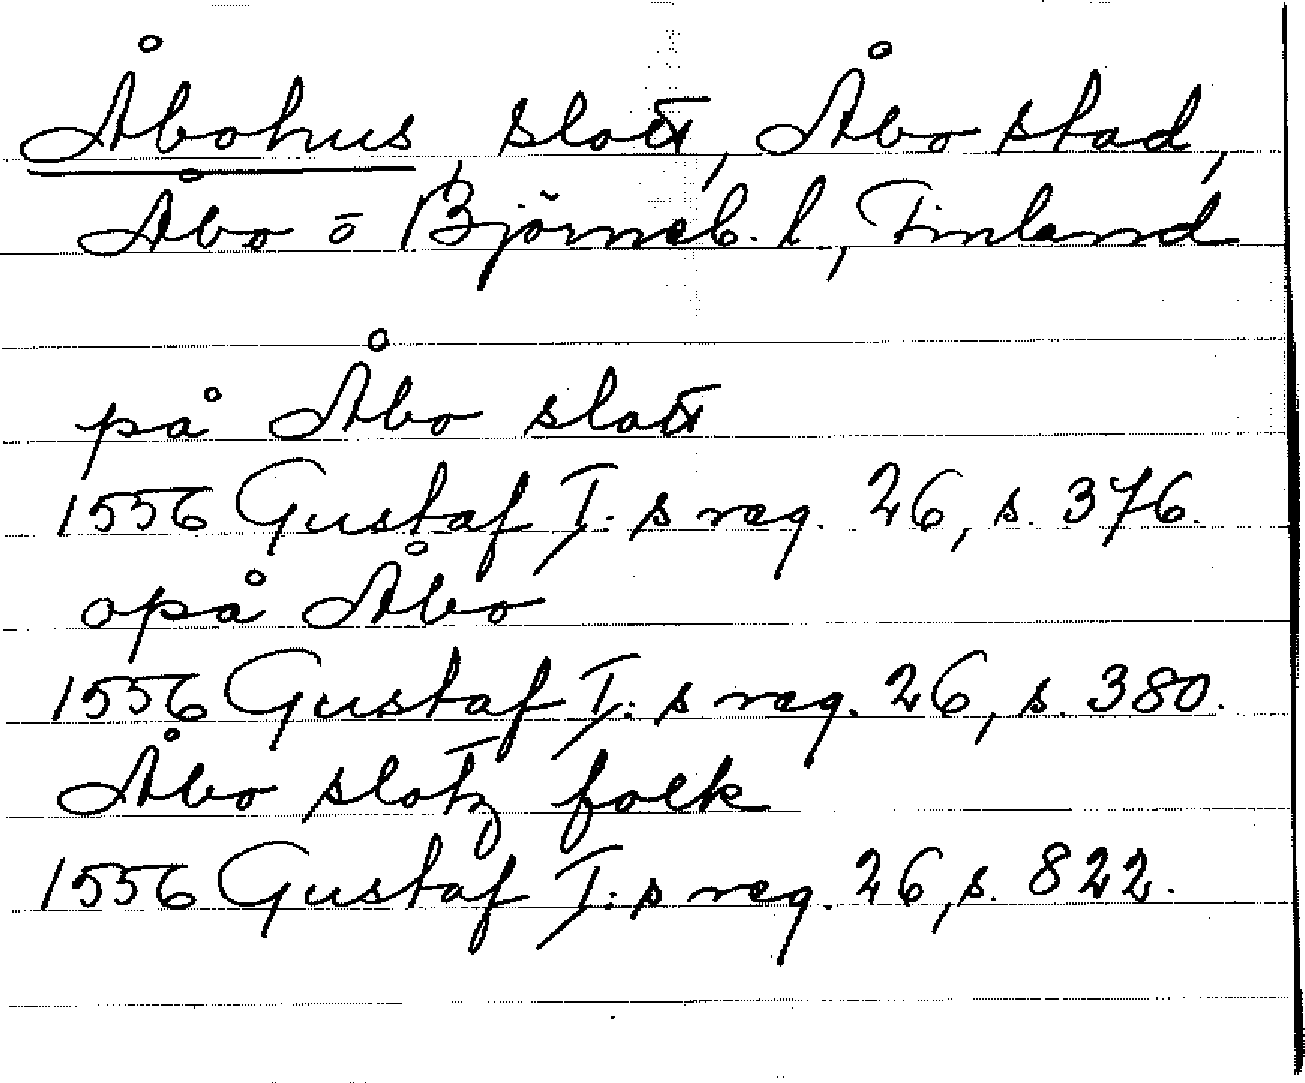 Åbohus slott, Åbo stad,
Åbo o Björneb. l, Finland
på Åbo slott
1556 Gustaf I:s reg. 26, s. 376.
opå Åbo
1556 Gustaf I:s reg. 26, s. 380.
Åbo slotz folk
1556 Gustaf I:s reg. 26, s. 822.